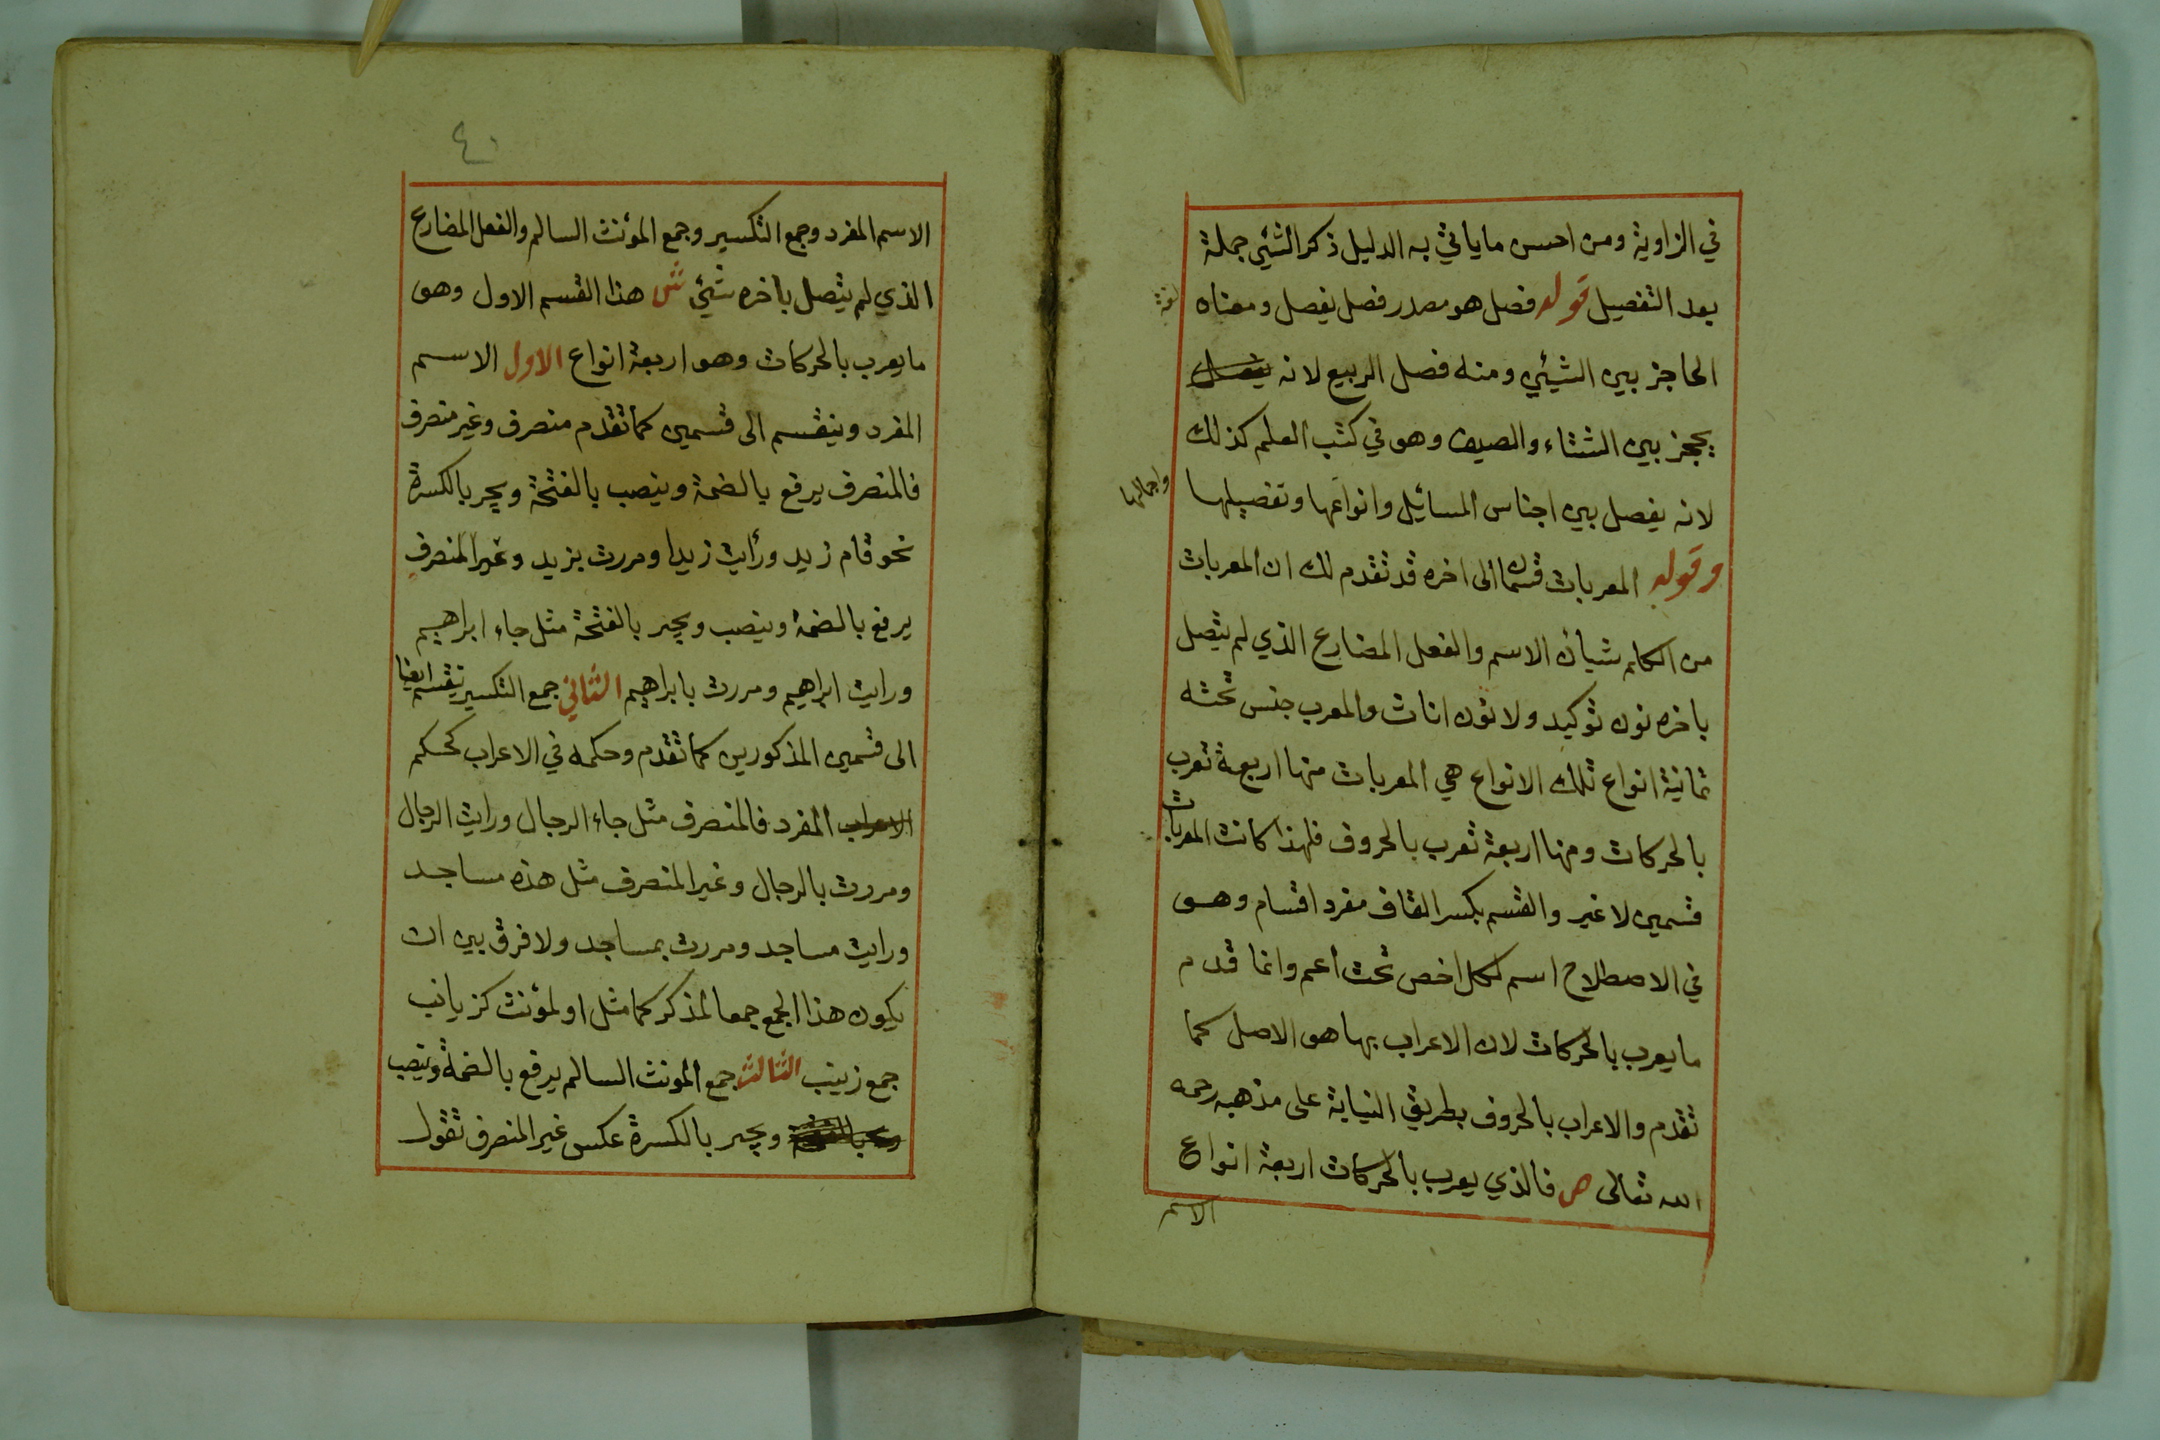 في الزاوية ومن احسن ماياتي به الدليل ذكر الشيئ جملة
بعد التفصيل قوله فصل هو مصدر فصل يفصل ومعناه
لغة
الحاجز بين الشيئي ومنه فصل الربيع لانه يفصل
يحجز بين الشتاء والصيف وهو في كتب العلم كذلك
لانه يفصل بين اجناس المسائيل وانواعها وتفصيلها
واجمالها
وقوله المعربات قسمان الى اخره قد تقدم لك ان المعربات
من الكلام شيأن الاسم والفعل المضارع الذي لم يتصل
باخره نون توكيد ولا نون اناث والمعرب جنس تحته
ثمانية انواع تلك الانواع هي المعربات منها اربعة تعرب
بالحركات ومنها اربعة تعرب بالحروف فلهذا كانت المعربات
قسمين لا غير والقسم بكسر القاف مفرد اقسام وهو
في الاصطلاح اسم لكل اخص تحت أعم وانما قدم
ما يعرب بالحركات لان الاعراب بها هو الاصل كما
تقدم والاعراب بالحروف بطريق النيابة على مذهبه رحمه
الله تعالى ص فالذي يعرب بالحركات اربعة انواع
الاسم
٤٠
الاسم المفرد وجمع التكسير وجمع المؤنث السالم والفعل المضارع
الذي لم يتصل باخره شيئ ش هذا القسم الاول وهو
ما يعرب بالحركات وهو اربعة انواع الاول الاسم
المفرد وينقسم الى قسمين كما تقدم منصرف وغير منصرف
فالمنصرف يرفع بالضمة وينصب بالفتحة ويجر بالكسرة
نحو قام زيد ورأيت زيدا ومررت بزيد وغير المنصرف
يرفع بالضمة وينصب ويجر بالفتحة مثل جاء ابراهيم
ورايت ابراهيم ومررت بابراهيم الثاني جمع التكسير ينقسم ايضا
الى قسمين المذكورين كما تقدم وحكمه في الاعراب كحكم
الاعراب المفرد فالمنصرف مثل جاء الرجال ورايت الرجال
ومررت بالرجال وغير المنصرف مثل هذه مساجد
ورايت مساجد ومررت بمساجد ولا فرق بين ان
يكون هذا الجمع جمعا لمذكر كما مثل او لمؤنث كزيانب
جمع زينب الثالث جمع المونث السالم يرفع بالضمة وينصب
ويجر بالكسرة عكس غير المنصرف تقول